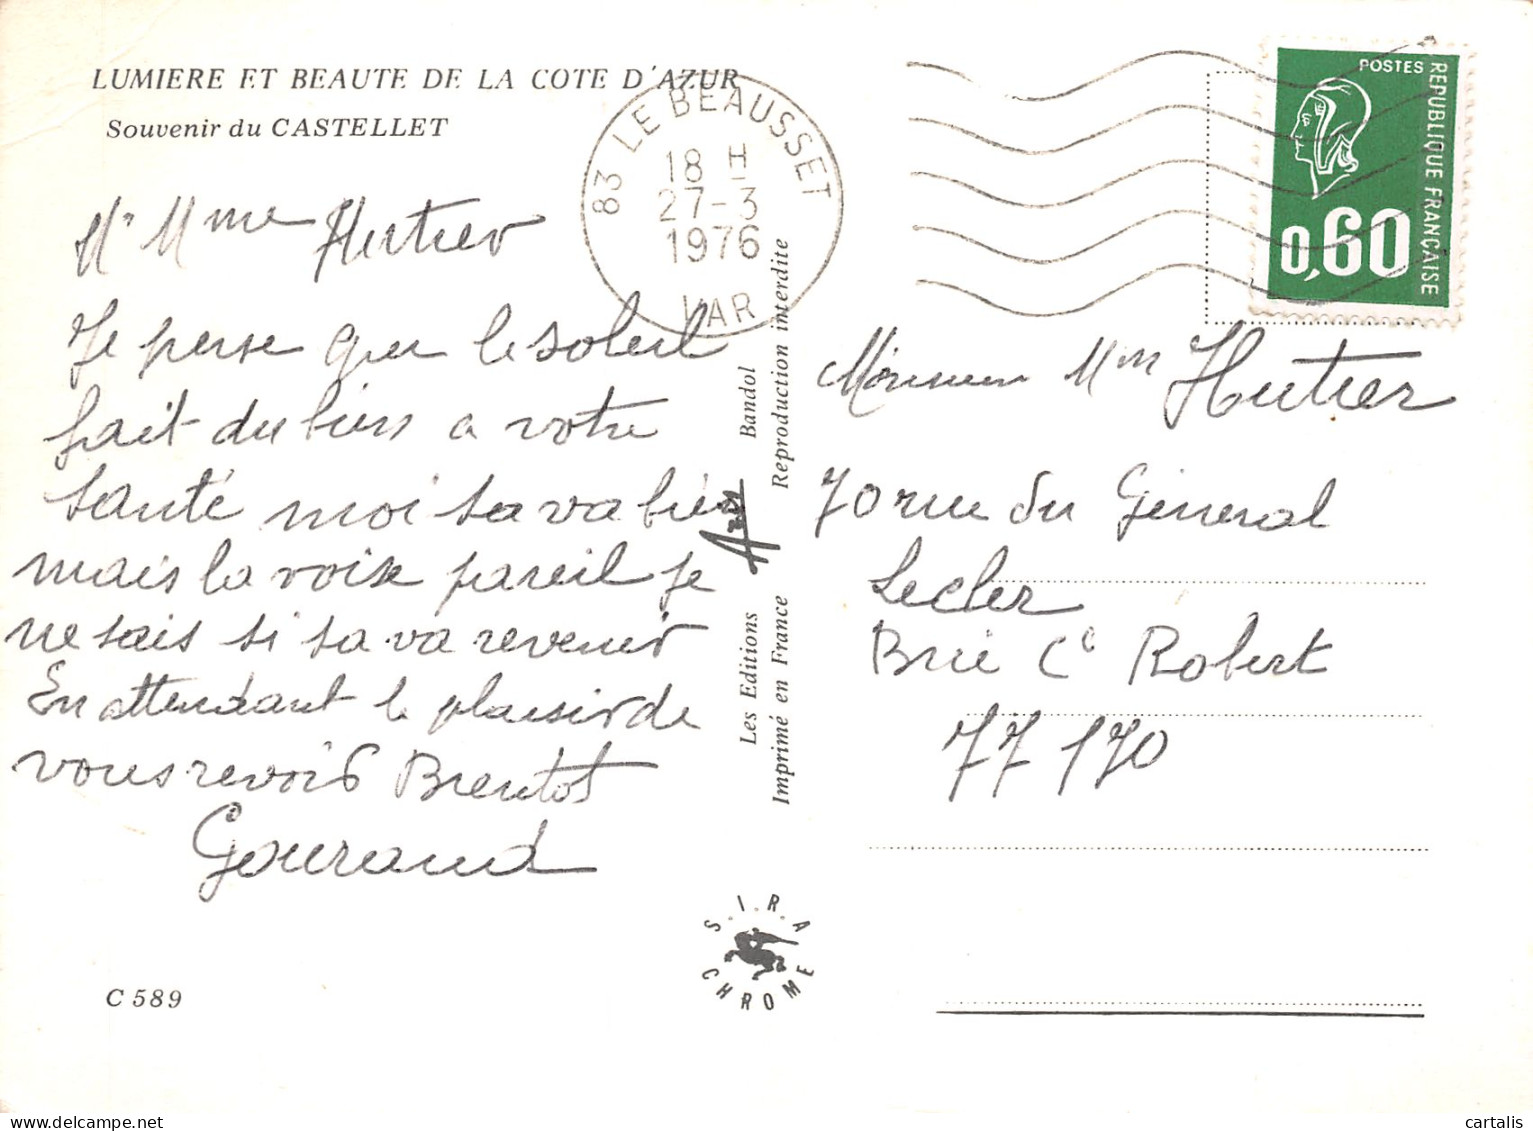 LUMIERE ET BEAUTE DE LA COTE D'AZUR
Souvenir du CASTELLET
83 LE BEAUSSET
18 H
27-3
1976
VAR
POSTES
REPUBLIQUE FRANÇAISE
0,60
Mr Mme Hutier
Je pense que le soleil
fait du bien a votre
santé moi sa va bien
mais la voix pareil je
ne sais si sa va revenir
En attendant le plaisir de
vous revoir Bientot
Gouraud
C 589
Les Editions Azur Bandol
Imprimé en France Reproduction interdite
S.I.R.A
CHROME
Monsieur Mm Hutier
70 rue du Géneral
Lecler
Brie Ce Robert
77170
cartalis